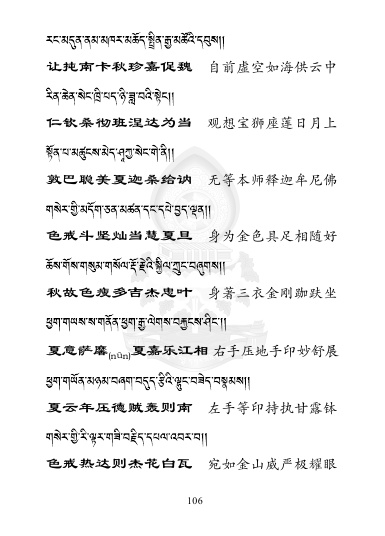 རང་མདུན་ནམ་མཁར་མཆོད་སྤྲིན་རྒྱ་མཚོའི་དབུས།།
让扽南卡秋珍嘉促魏 自前虚空如海供云中
རིན་ཆེན་སེང་ཁྲི་པད་ཉི་ཟླ་བའི་སྟེང་།།
仁钦桑彻班涅达为当 观想宝狮座莲日月上
སྟོན་པ་མཚུངས་མེད་ཤཱཀྱ་སེང་གེ་ནི།།
敦巴聪美夏迦桑给讷 无等本师释迦牟尼佛
གསེར་གྱི་མདོག་ཅན་མཚན་དང་དཔེ་བྱད་ལྡན།།
色戒斗坚灿当慧夏旦 身为金色具足相随好
ཆོས་གོས་གསུམ་གསོལ་རྡོ་རྗེའི་སྐྱིལ་ཀྲུང་བཞུགས།།
秋故色瘦多吉杰忠叶 身著三衣金刚跏趺坐
ཕྱག་གཡས་ས་གནོན་ཕྱག་རྒྱ་ལེགས་བརྐྱངས་ཤིང་།།
夏意萨䴢(nūn)夏嘉乐江相 右手压地手印妙舒展
ཕྱག་གཡོན་མཉམ་བཞག་བདུད་རྩིའི་ལྷུང་བཟེད་བསྣམས།།
夏云年压德贼轰则南 左手等印持执甘露钵
གསེར་གྱི་རི་ལྟར་གཟི་བརྗིད་དཔལ་འབར་བ།།
色戒热达则杰花白瓦 宛如金山威严极耀眼
106